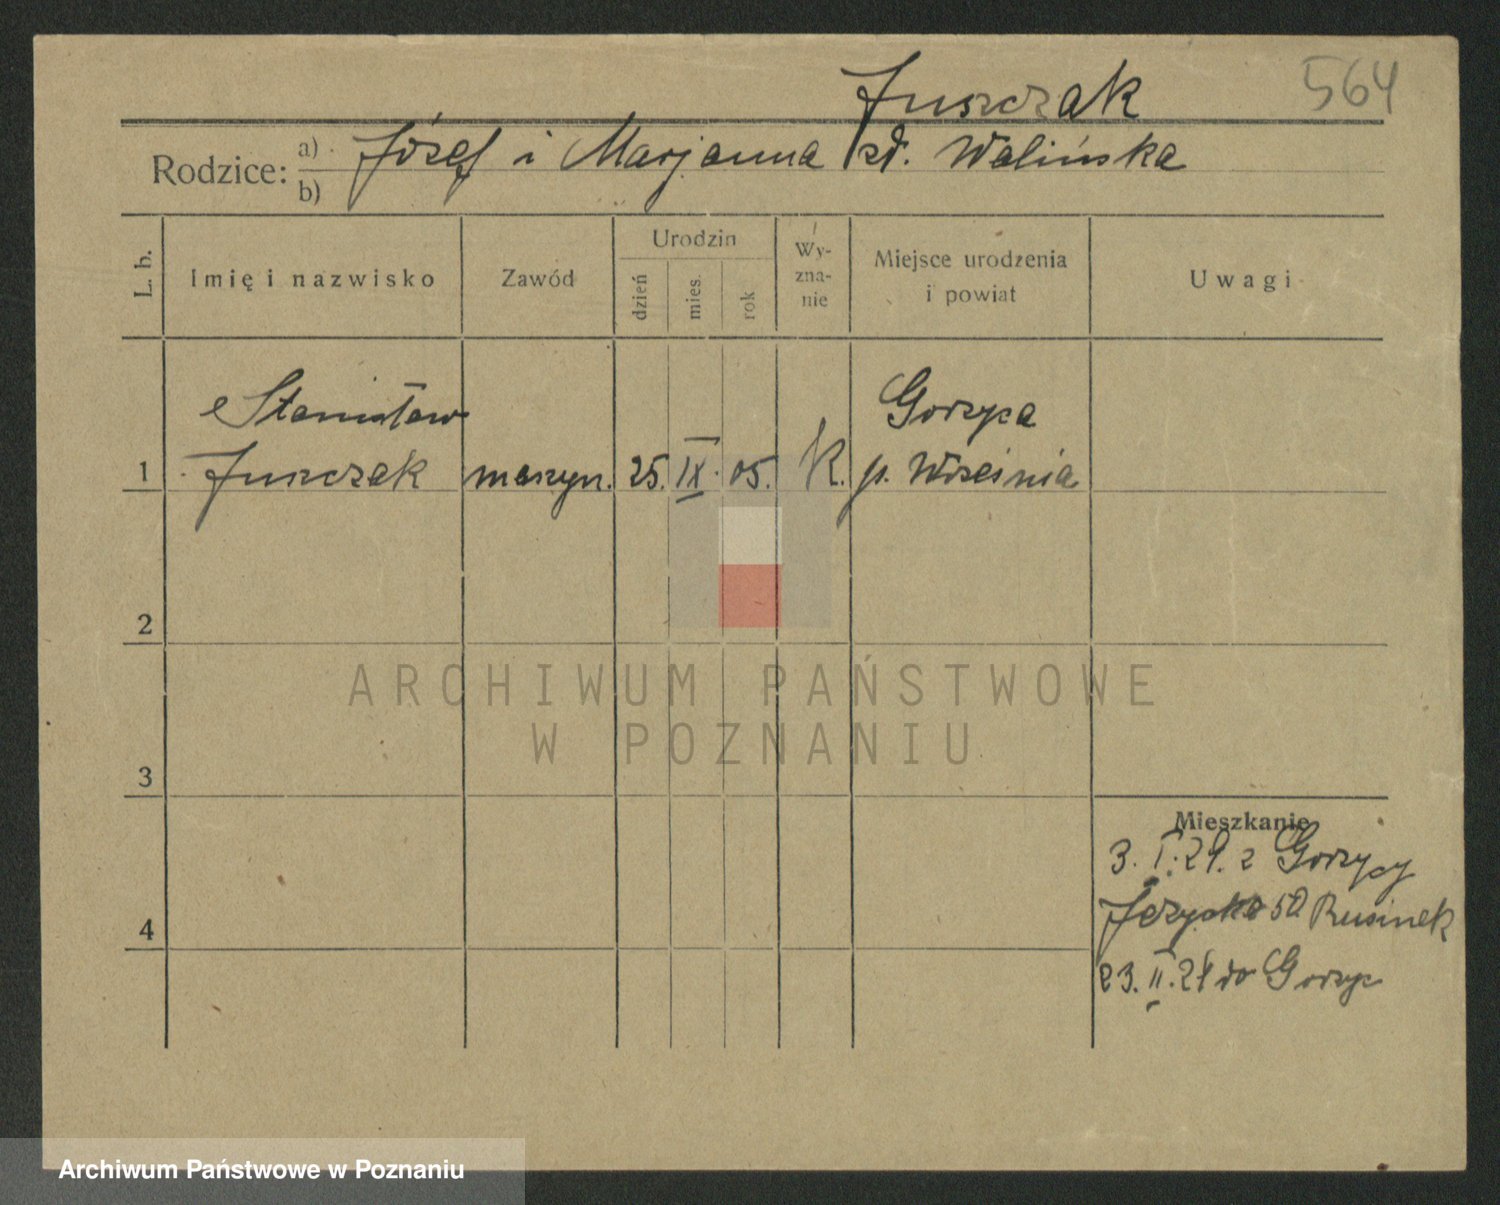 Juszczak 564
Rodzice: a) Józef i Marjanna zd. Walińska
b)
L. b. Imię i nazwisko Zawód Urodzin dzień mies. rok Wy-zna-nie Miejsce urodzenia i powiat Uwagi
Stanisław Gorzyca
1 Juszczak maszyn. 25. IX. 05. K. p. Września
2
ARCHIWUM PAŃSTWOWE
W POZNANIU
3
Mieszkanie
3. I. 29. z Gorzycy
4 50 Rusinek
23. II. 29 do Gorzyc
Archiwum Państwowe w Poznaniu